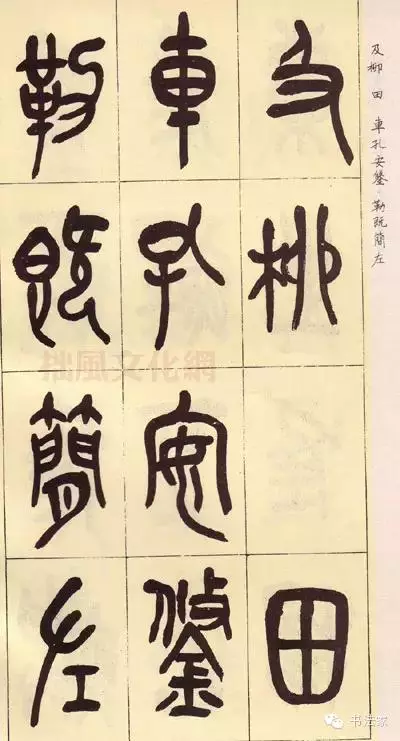 及柳 田 車孔安鋚·勒既簡左
及柳田
車孔安鋚
勒既簡左
拙風文化網
书法家